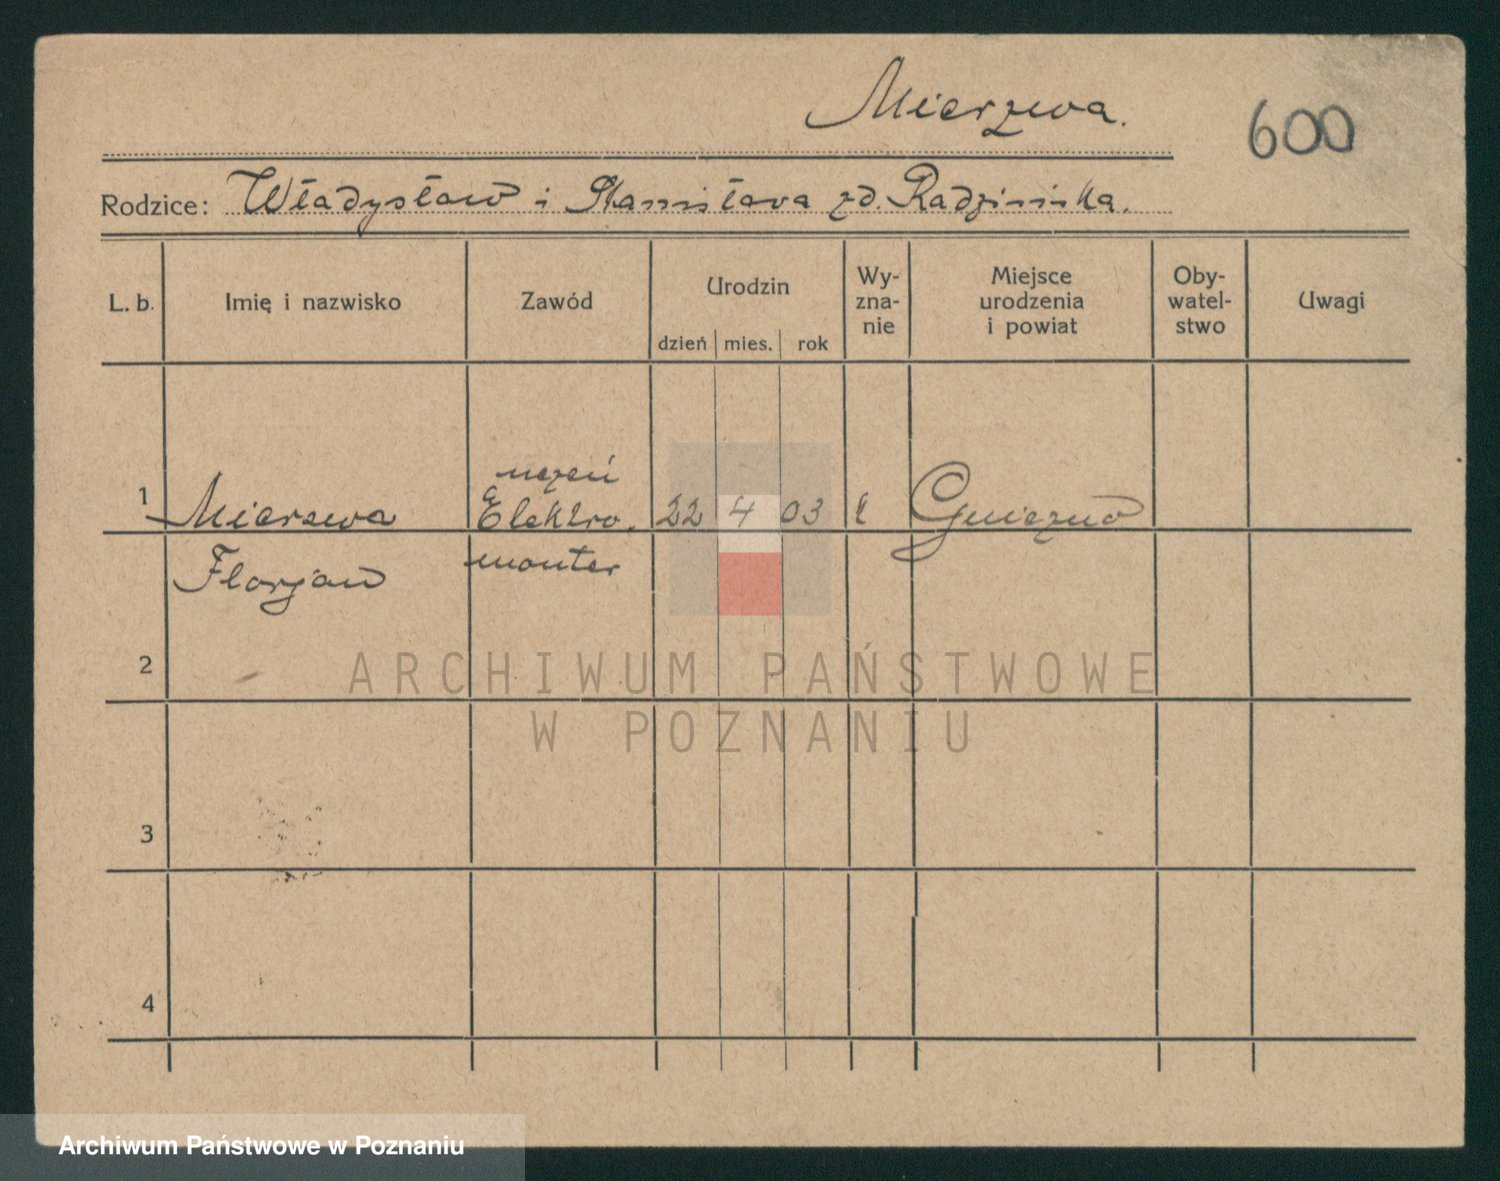 Mierzwa.
600
Rodzice: Władysław i Stanisława zd. Radzimska.
L. b.
Imię i nazwisko
Zawód
Urodzin
dzień
mies.
rok
Wy-
zna-
nie
Miejsce
urodzenia
i powiat
Oby-
watel-
stwo
Uwagi
1
Mierzwa
Florjan
uczeń
Elektro.
monter
22
4
03
Gniezno
2
ARCHIWUM PAŃSTWOWE
W POZNANIU
3
4
Archiwum Państwowe w Poznaniu